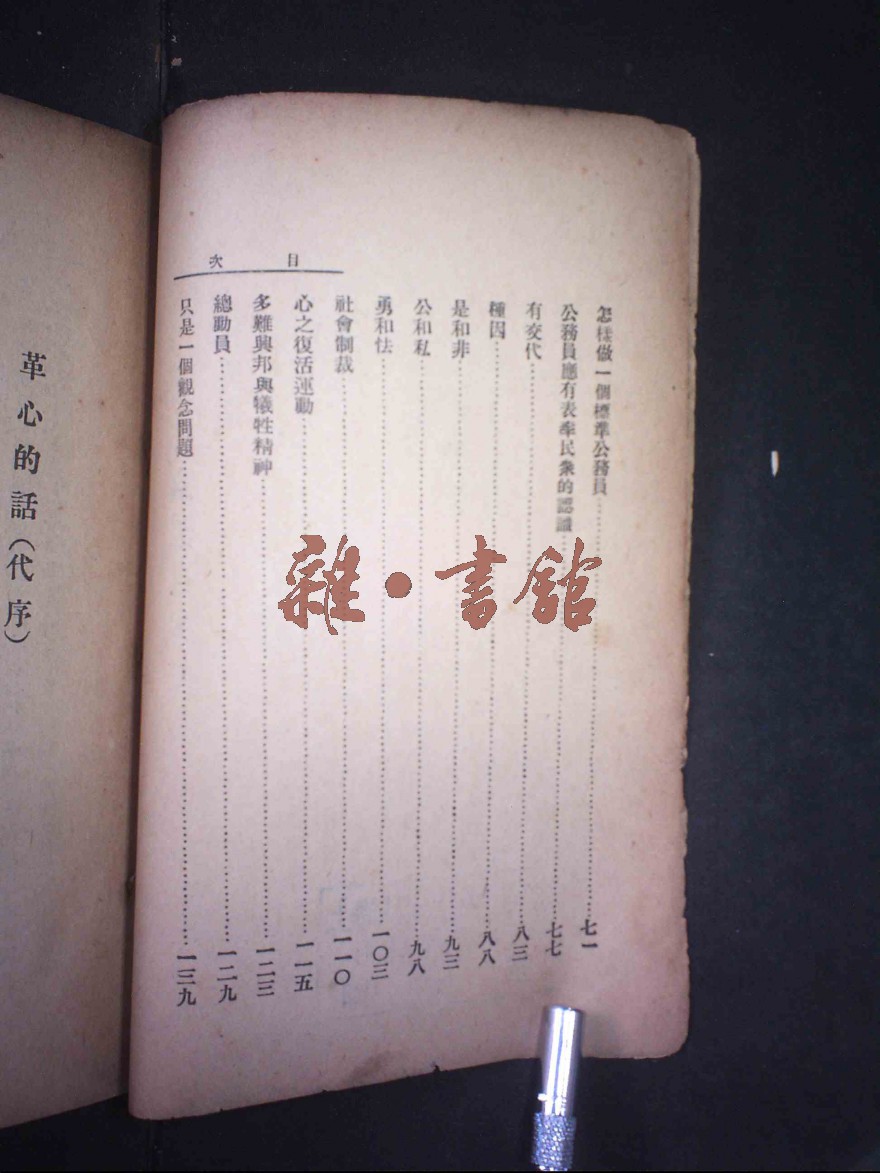 目次
怎樣做一個標準公務員……七一
公務員應有表率民衆的認識……七七
有交代……八三
種因……八八
是和非……九三
公和私……九八
勇和怯……一〇三
社會制裁……一一〇
心之復活運動……一一五
多難興邦與犧牲精神……一二三
總動員……一二九
只是一個觀念問題……一三九
革心的話（代序）
雜·書館